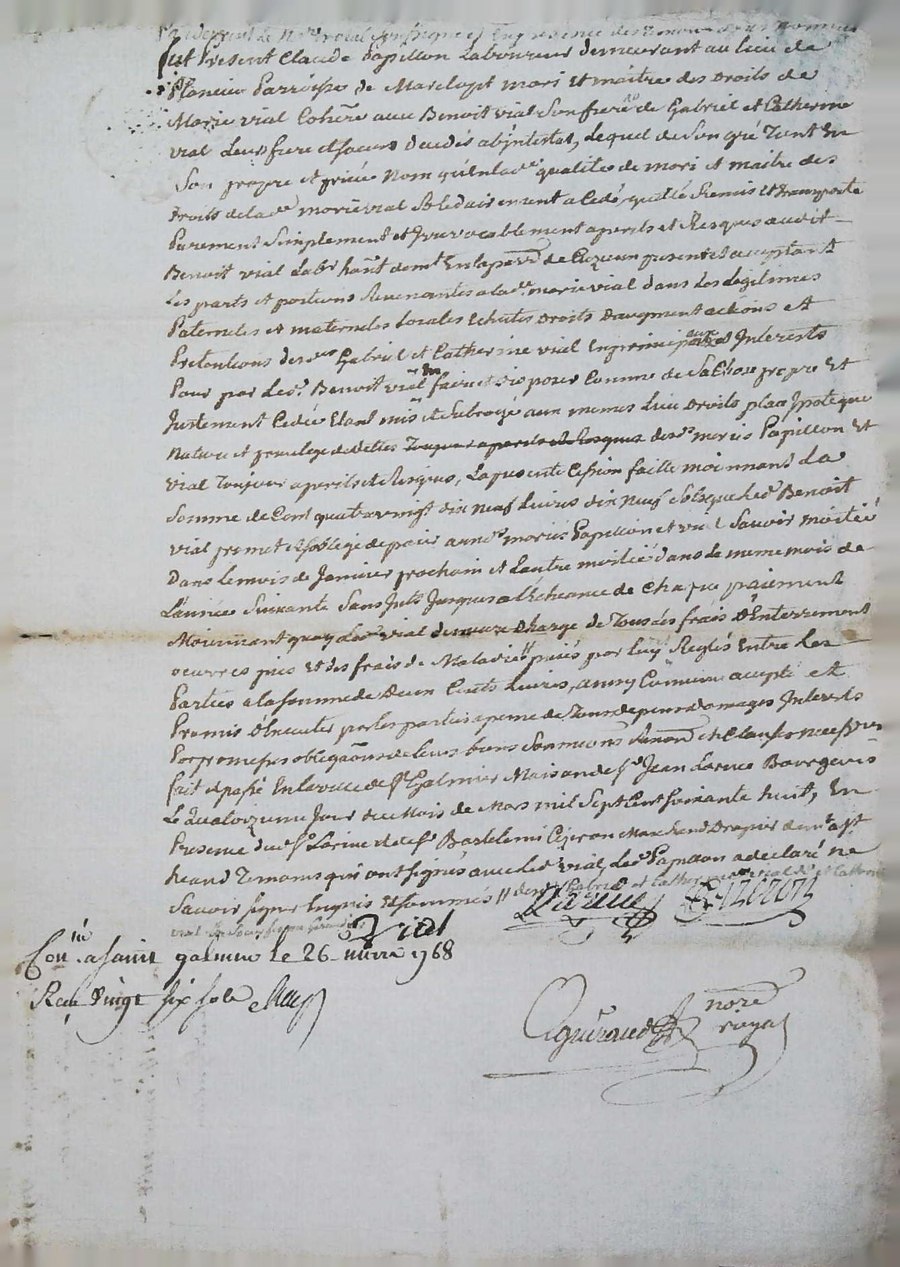 Pardevant le No.re Roial soussigné et En presence des Temoins
fut Present Claude Papillon Laboureur demeurant au lieu de
Plancieu Parroisse de Marclopt mari Et maitre des Droits de
Marie vial Coh.re avec Benoit vial Son frere de Gabriel et Catherine
vial Leurs frere et soeurs decedés abintestat, Lequel de Son gré Tant En
Son propre et privé Nom qu'En lad.e qualité de mari et maitre des
Droits de lad.e marie vial Solidairement a Cedé, quitté Remis Et transporté
Purement Simplement et Irrevocablement a perils et Risques audit
Benoit vial Lab.r hant dem.t En la par.e de present et acceptant
Les parts et portions Revenantes a lad.e marie vial dans Les Legitimes
Paternelles et maternelles Locales Echutes Droits Daugment actions et
Pretentions des d.s Gabriel et Catherine vial En principaux et Interests
Pour par Led. Benoit vial En faire et disposer Comme de Sa Chose propre Et
Justement Cedée Etant mis et Subrogé aux memes Lieu Droits place Ipoteque
Nature et privilege desdittes Toujour a perils et Risques des d.s mariés Papillon Et
vial Toujour a perils et Risques, La presente Cession faitte moiennant La
Somme de Cent quatre vingt dix neuf Livres dix neuf Sols que Led. Benoit
vial promet et s'oblige de paier aux d.s mariés Papillon et vial Savoir moitié
Dans le mois de Janvier prochain et Lautre moitié dans le meme mois de
L'année Suivante Sans Jnt.s Jusques a l'échéance de Chaque paiement
Moiennant quoy Led. vial demeure Chargé de Tous les frais d'Enterrement
oeuvres pies Et des frais de Maladies paiés par luy Reglés Entre Les
Parties a la somme de Deux Cents Livres, ainsy Convenu accepté et
Promis d'Executer par les parties a peine de Tous depens domages Interets
Par promesses obligaōns de leurs biens Soumissions Renonc.
fait et passé En la ville de S.t Galmier Maison de S.r Jean Larue Bourgeois
Le Quatorzieme Jour du Mois de Mars mil Sept Cent Soixante huit, En
Presence dud. S.r et de S.r Bartelemi Cizeron Marchand Drapier dem.t a S.t
heand Temoins qui ont Signés avec Led. vial, Led. Papillon a declaré ne
Savoir Signer Enquis et Sommés
Cizeron
Vial
Con.lé a saint galmier le 26 mars 1768
Reçu Vingt six sols
Giraud no.re royal